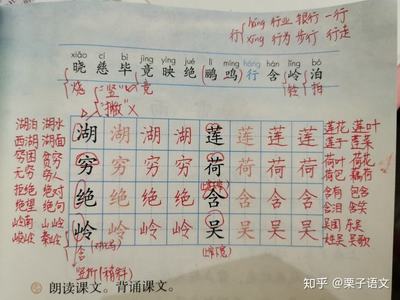 háng 行业 银行 一行
行
xíng 行为 步行 行走
xiǎo cí bì jìng yìng jué lí míng háng hán lǐng bó
晓 慈 毕 竟 映 绝 鹂 鸣 行 含 岭 泊
烧 "竖" 竟 铃 拍
"撇" ×
湖泊 湖水 湖 湖 湖 湖 莲 莲 莲 莲 莲花 莲叶
西湖 湖面 莲子 莲菜
穷困 贫穷 穷 穷 穷 穷 荷 荷 荷 荷 荷叶 荷花
无穷 穷人 荷包
拒绝 绝对 绝 绝 绝 绝 含 含 含 含 含有 包含
绝望 绝句 含泪 含笑
岭南 山岭 岭 岭 岭 岭 吴 吴 吴 吴 吴国 东吴
秦岭 姓吴 吴歌
朗读课文。背诵课文。
知乎 @栗子语文